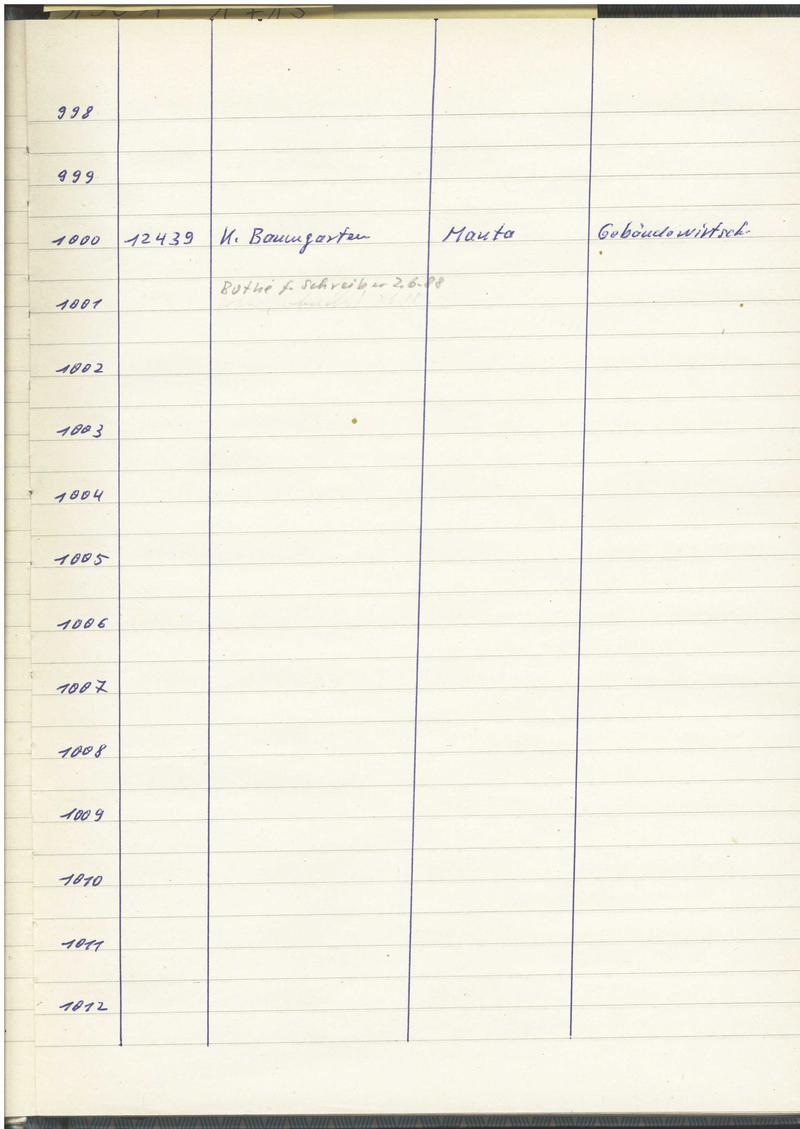 998
999
1000 12439 K. Baumgarten Manta Gebäudewirtsch.
Bothe f. Schreiber 2.6.88
1001
1002
1003
1004
1005
1006
1007
1008
1009
1010
1011
1012